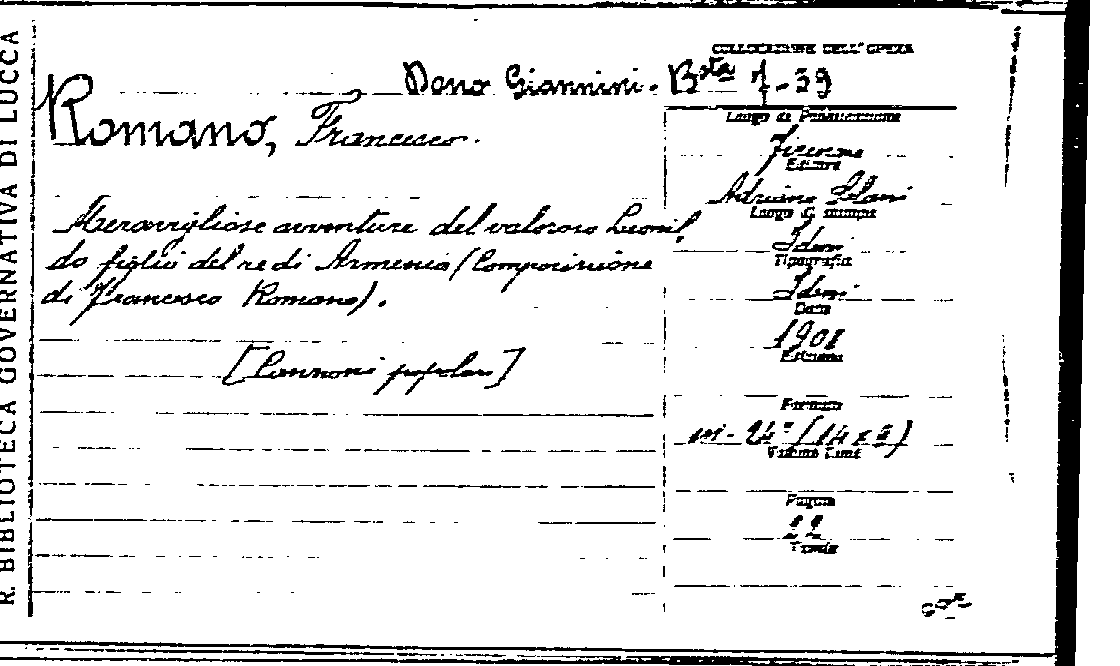 R. BIBLIOTECA GOVERNATIVA DI LUCCA
COLLOCAZIONE DELL'OPERA
Dono Giannini. Bsta 7-39
Romano, Francesco.
Meravigliose avventure del valoroso Leonil,
do figlio del re di Armenia (Composizione
di Francesco Romano).
[Canzoni popolari]
Luogo di Pubblicazione
Firenze
Editore
Adriano Salani
Luogo di stampa
Idem
Tipografia
Idem
Data
1901
Edizione
Formato
in-24° (14x
Volumi
Pagine
Tavole